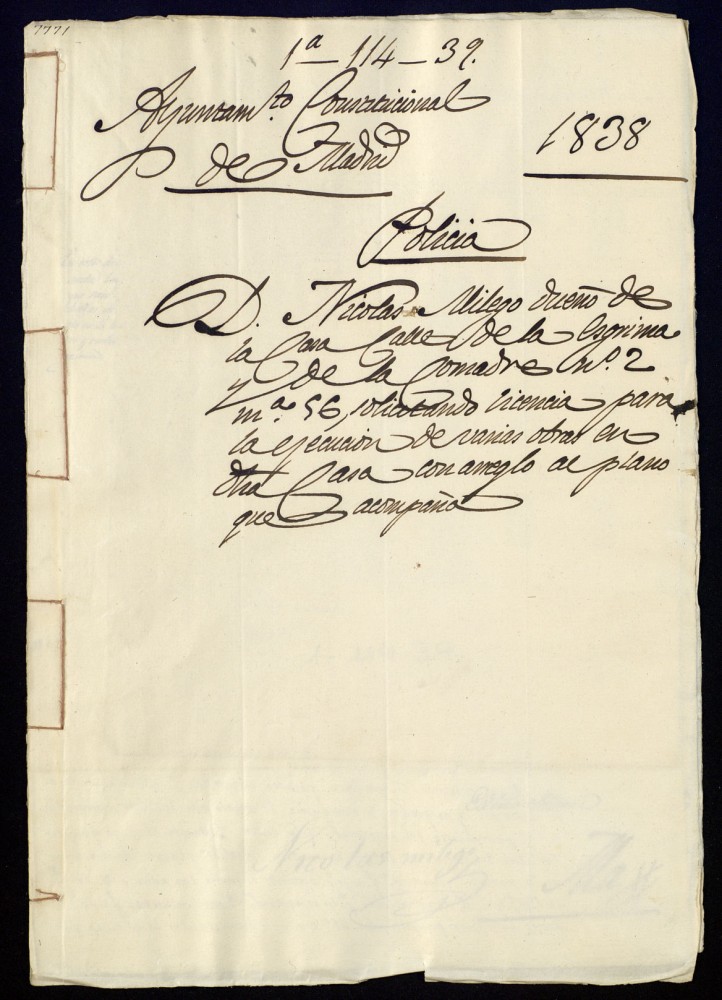 7771
1ª - 114 - 39.
Ayuntamto. Constitucional
de Madrid
1838
Policia
D. Nicolas Milego dueño de
la Casa Calle de la Esgrima
y de la Comadre nº. 2
mª 56, solicitando licencia para
la ejecucion de varias obras en
dha Casa con arreglo al plano
que acompaña
Nicolas Milego